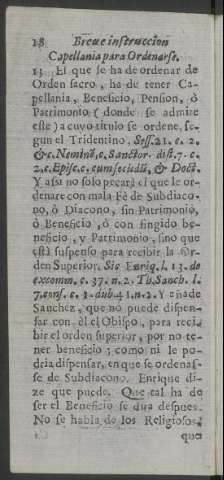 18 Breue instruccion
Capellania para Ordenarse.
13 El que se ha de ordenar de
Orden sacro, ha de tener Ca-
pellania, Beneficio, Pension, ò
Patrimonio (y donde se admite
este) a cuyo titulo se ordene, se-
gun el Tridentino, Sess. 21. c. 2.
& c. Neminē, e. Sanctor. dist. 7. c.
2. e. Episc. e. cum secūdū, & Doct.
Y assi no solo pecarà el que le or-
denare con mala Fè de Subdiaco-
no, ò Diacono, sin Patrimonio,
ò Beneficio, ò con fingido be-
neficio, y Patrimonio, sino que
està suspenso para recibir la Or-
den Superior. Sic Enriq. l. 13. de
excomm. c. 37. n. 2. Th. Sanch. l.
7. cons. c. 1. dub. 41. n. 2. Y añade
Sanchez, que no puede dispen-
sar con èl el Obispo, para reci-
bir el orden superior, por no te-
ner beneficio; como ni le po-
dria dispensar, en que se ordenas-
se de Subdiacono. Enrique di-
ze que puede. Que tal ha de
ser el Beneficio se dira despues.
No se habla de los Religiosos,
que